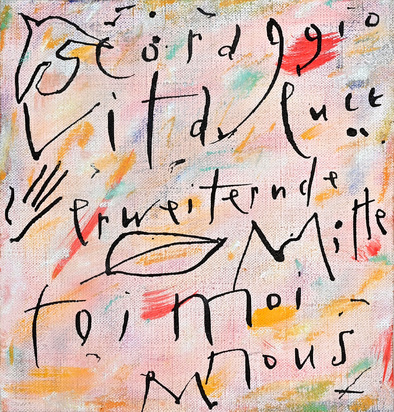 coraggio
vita
erweiternde
Mitte
toi moi
nous